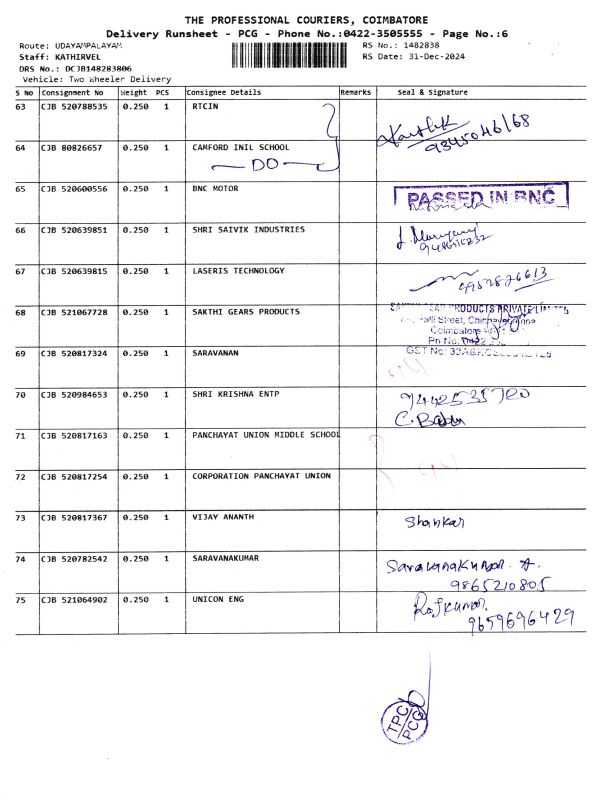 THE PROFESSIONAL COURIERS, COIMBATORE
Delivery Runsheet - PCG - Phone No.:0422-3505555 - Page No.:6
Route: UDAYAMPALAYAM
RS No.: 1482838
Staff: KATHIRVEL
RS Date: 31-Dec-2024
DRS No.: DCJB148283806
Vehicle: Two Wheeler Delivery
S No Consignment No Weight PCS Consignee Details Remarks Seal & Signature
63 CJB 520788535 0.250 1 RTCIN
Karthik
9345046168
64 CJB 80826657 0.250 1 CAMFORD INIL SCHOOL
DO
65 CJB 520600556 0.250 1 BNC MOTOR
PASSED IN BNC
66 CJB 520639851 0.250 1 SHRI SAIVIK INDUSTRIES
67 CJB 520639815 0.250 1 LASERIS TECHNOLOGY
9952826613
68 CJB 521067728 0.250 1 SAKTHI GEARS PRODUCTS
PRODUCTS PRIVATE LIMITED
Street,
Coimbatore
69 CJB 520817324 0.250 1 SARAVANAN
GST No:
70 CJB 520984653 0.250 1 SHRI KRISHNA ENTP
C. Babu
71 CJB 520817163 0.250 1 PANCHAYAT UNION MIDDLE SCHOOL
72 CJB 520817254 0.250 1 CORPORATION PANCHAYAT UNION
73 CJB 520817367 0.250 1 VIJAY ANANTH
Shankar
74 CJB 520782542 0.250 1 SARAVANAKUMAR
Saravanakumar. A.
9865210805
75 CJB 521064902 0.250 1 UNICON ENG
Rajkumar.
9659696429
TPC
PCG